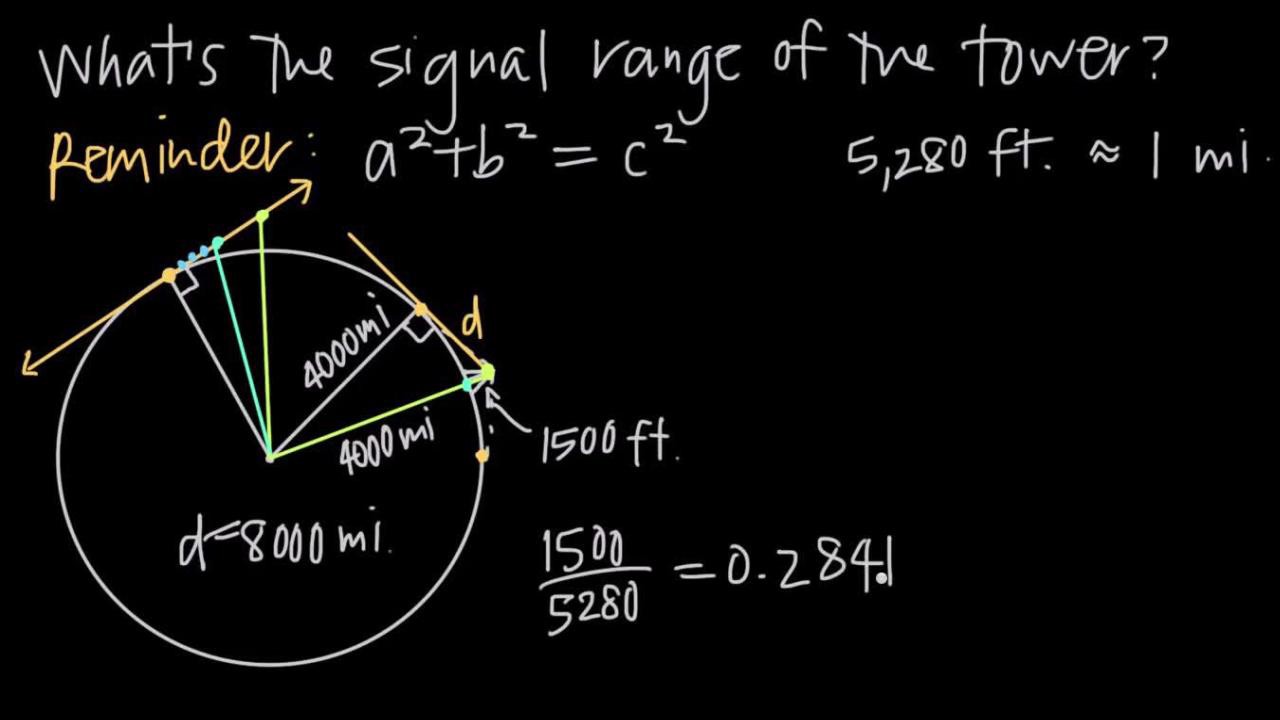 What's the signal range of the tower?
Reminder: a²+b² = c² 5,280 ft. ≈ 1 mi.
d
4000mi
4000mi
1500 ft.
d=8000 mi.
1500/5280 = 0.2841